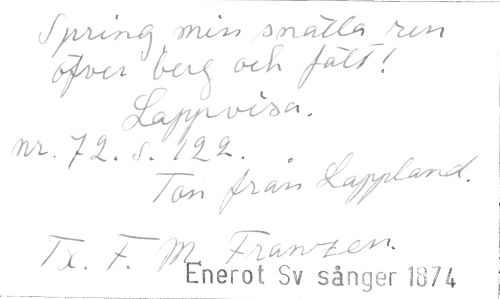 Spring min snälla ren
öfver berg och fält!
Lappvisa.
nr. 72. s. 122.
Ton från Lappland.
Tx. F. M. Franzen.
Enerot Sv sånger 1874